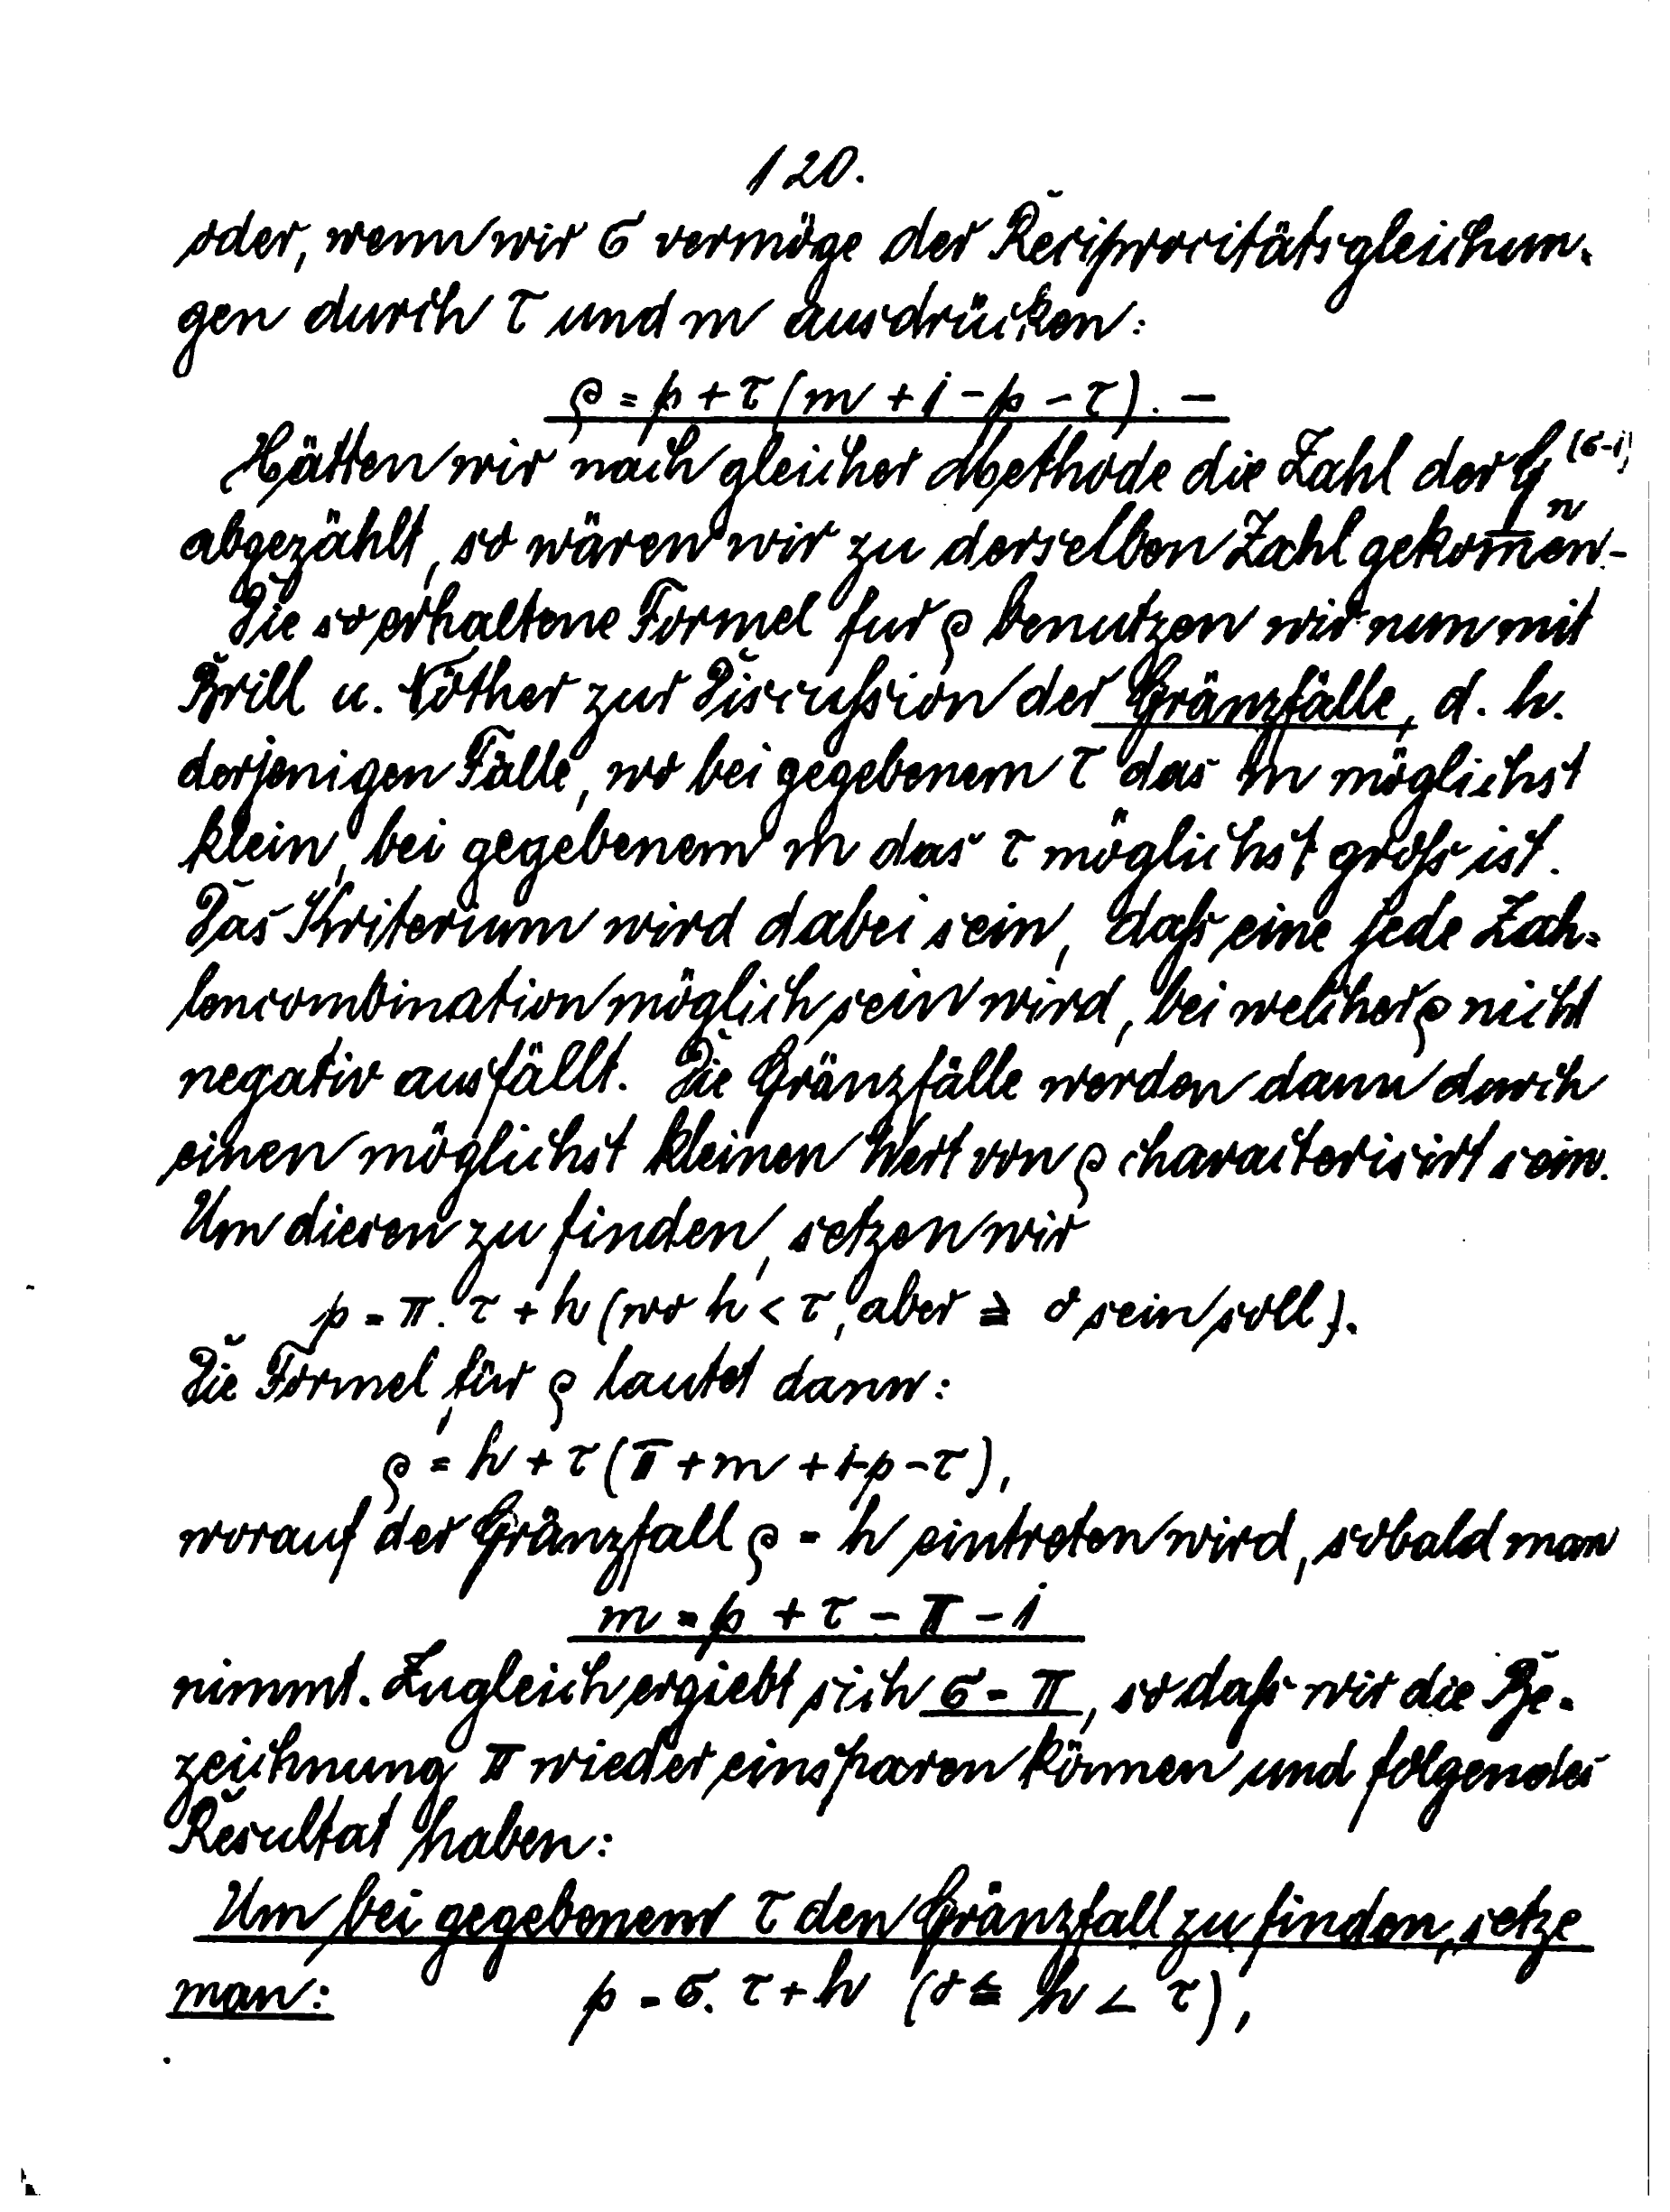 120.
oder, wenn wir σ vermöge der Reciprocitätsgleichun-
gen durch τ und m ausdrücken:
ρ = p + τ (m + 1 - p - τ). —
Hätten wir nach gleicher Methode die Zahl der G_n^{(σ-1)}
abgezählt, so wären wir zu derselben Zahl gekom̅en. -
Die so erhaltene Formel fur ρ benutzen wir nun mit
Brill u. Nöther zur Discussion der Gränzfälle, d. h.
derjenigen Fälle, wo bei gegebenem τ das m möglichst
klein, bei gegebenem m das τ möglichst groß ist.
Das Kriterium wird dabei sein, daß eine jede Zah-
lencombination möglich sein wird, bei welcher ρ nicht
negativ ausfällt. Die Gränzfälle werden dann durch
einen möglichst kleinen Wert von ρ characterisirt sein.
Um diesen zu finden, setzen wir
p = π. τ + h (wo h < τ, aber ≧ 0 sein soll).
Die Formel für ρ lautet dann:
ρ = h + τ (π + m + 1 - p - τ),
worauf der Gränzfall ρ = h eintreten wird, sobald man
m = p + τ - π - 1
nimmt. Zugleich ergiebt sich σ = π, so daß wir die Be-
zeichnung π wieder einsparen können und folgendes
Resultat haben:
Um bei gegebenem τ den Gränzfall zu finden, setze
man: p = σ. τ + h (0 ≦ h < τ),